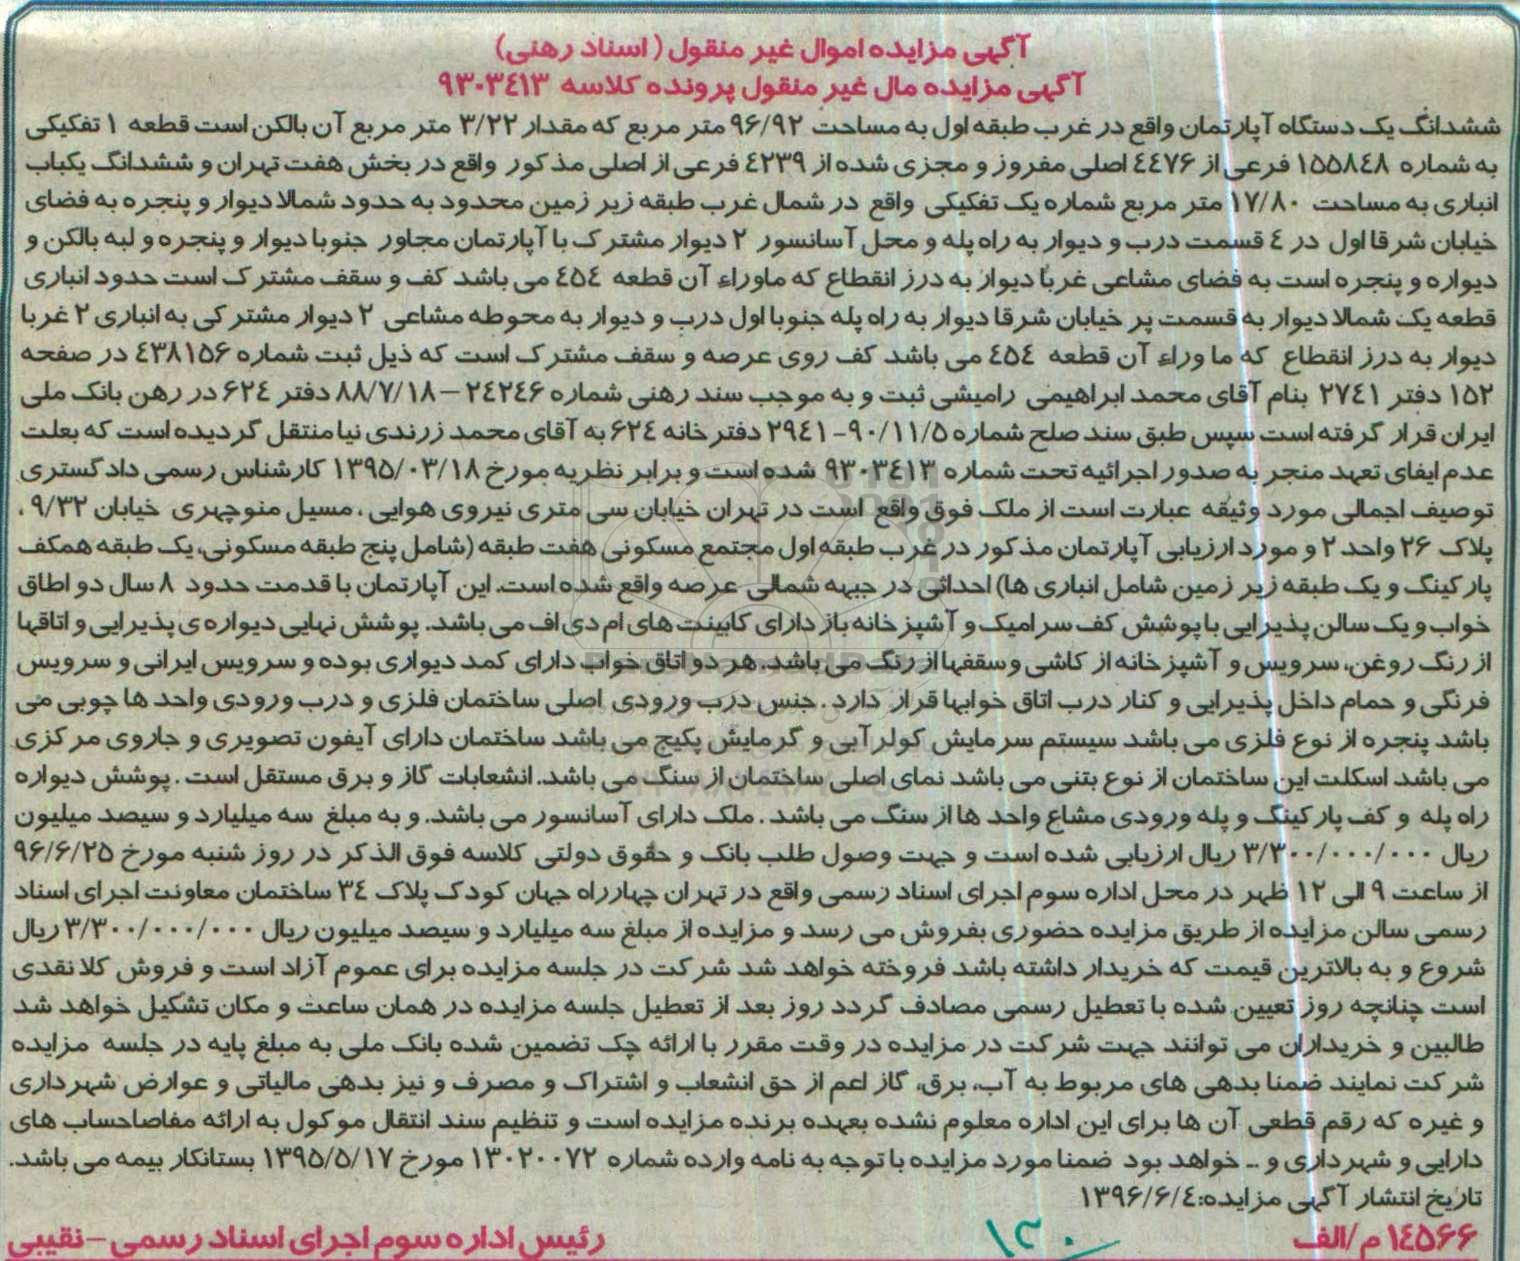 آگهی مزایده اموال غیر منقول (اسناد رهنی)
آگهی مزایده مال غیر منقول پرونده کلاسه ۹۳۰۳۴۱۳
ششدانگ یک دستگاه آپارتمان واقع در غرب طبقه اول به مساحت ۹۶/۹۲ متر مربع که مقدار ۳/۲۲ متر مربع آن بالکن است قطعه ۱ تفکیکی
به شماره ۱۵۵۸۴۸ فرعی از ۴۴۷۶ اصلی مفروز و مجزی شده از ۴۲۳۹ فرعی از اصلی مذکور واقع در بخش هفت تهران و ششدانگ یکباب
انباری به مساحت ۱۷/۸۰ متر مربع شماره یک تفکیکی واقع در شمال غرب طبقه زیر زمین محدود به حدود شمالا دیوار و پنجره به فضای
خیابان شرقا اول در ۴ قسمت درب و دیوار به راه پله و محل آسانسور ۲ دیوار مشترک با آپارتمان مجاور جنوبا دیوار و پنجره و لبه بالکن و
دیواره و پنجره است به فضای مشاعی غرباً دیوار به درز انقطاع که ماوراء آن قطعه ۴۵۴ می باشد کف و سقف مشترک است حدود انباری
قطعه یک شمالا دیوار به قسمت پر خیابان شرقا دیوار به راه پله جنوبا اول درب و دیوار به محوطه مشاعی ۲ دیوار مشترکی به انباری ۲ غربا
دیوار به درز انقطاع که ما وراء آن قطعه ۴۵۴ می باشد کف روی عرصه و سقف مشترک است که ذیل ثبت شماره ۴۳۸۱۵۶ در صفحه
۱۵۲ دفتر ۲۷۴۱ بنام آقای محمد ابراهیمی رامیشی ثبت و به موجب سند رهنی شماره ۲۴۲۴۶ – ۸۸/۷/۱۸ دفتر ۶۲۴ در رهن بانک ملی
ایران قرار گرفته است سپس طبق سند صلح شماره ۹۰/۱۱/۵-۲۹۴۱ دفتر خانه ۶۲۴ به آقای محمد زرندی نیا منتقل گردیده است که بعلت
عدم ایفای تعهد منجر به صدور اجرائیه تحت شماره ۹۳۰۳۴۱۳ شده است و برابر نظریه مورخ ۱۳۹۵/۰۳/۱۸ کارشناس رسمی دادگستری
توصیف اجمالی مورد وثیقه عبارت است از ملک فوق واقع است در تهران خیابان سی متری نیروی هوایی ، مسیل منوچهری خیابان ۹/۳۲ ،
پلاک ۲۶ واحد ۲ و مورد ارزیابی آپارتمان مذکور در غرب طبقه اول مجتمع مسکونی هفت طبقه (شامل پنج طبقه مسکونی، یک طبقه همکف
پارکینگ و یک طبقه زیر زمین شامل انباری ها) احداثی در جبهه شمالی عرصه واقع شده است. این آپارتمان با قدمت حدود ۸ سال دو اطاق
خواب و یک سالن پذیرایی با پوشش کف سرامیک و آشپزخانه باز دارای کابینت های ام دی اف می باشد. پوشش نهایی دیواره ی پذیرایی و اتاقها
از رنگ روغن، سرویس و آشپزخانه از کاشی و سقفها از رنگ می باشد. هر دو اتاق خواب دارای کمد دیواری بوده و سرویس ایرانی و سرویس
فرنگی و حمام داخل پذیرایی و کنار درب اتاق خوابها قرار دارد . جنس درب ورودی اصلی ساختمان فلزی و درب ورودی واحد ها چوبی می
باشد پنجره از نوع فلزی می باشد سیستم سرمایش کولر آبی و گرمایش پکیج می باشد ساختمان دارای آیفون تصویری و جاروی مرکزی
می باشد اسکلت این ساختمان از نوع بتنی می باشد نمای اصلی ساختمان از سنگ می باشد. انشعابات گاز و برق مستقل است . پوشش دیواره
راه پله و کف پارکینگ و پله ورودی مشاع واحد ها از سنگ می باشد . ملک دارای آسانسور می باشد. و به مبلغ سه میلیارد و سیصد میلیون
ریال ۳/۳۰۰/۰۰۰/۰۰۰ ریال ارزیابی شده است و جهت وصول طلب بانک و حقوق دولتی کلاسه فوق الذکر در روز شنبه مورخ ۹۶/۶/۲۵
از ساعت ۹ الی ۱۲ ظهر در محل اداره سوم اجرای اسناد رسمی واقع در تهران چهارراه جهان کودک پلاک ۳۴ ساختمان معاونت اجرای اسناد
رسمی سالن مزایده از طریق مزایده حضوری بفروش می رسد و مزایده از مبلغ سه میلیارد و سیصد میلیون ریال ۳/۳۰۰/۰۰۰/۰۰۰ ریال
شروع و به بالاترین قیمت که خریدار داشته باشد فروخته خواهد شد شرکت در جلسه مزایده برای عموم آزاد است و فروش کلا نقدی
است چنانچه روز تعیین شده با تعطیل رسمی مصادف گردد روز بعد از تعطیل جلسه مزایده در همان ساعت و مکان تشکیل خواهد شد
طالبین و خریداران می توانند جهت شرکت در مزایده در وقت مقرر با ارائه چک تضمین شده بانک ملی به مبلغ پایه در جلسه مزایده
شرکت نمایند ضمنا بدهی های مربوط به آب، برق، گاز اعم از حق انشعاب و اشتراک و مصرف و نیز بدهی مالیاتی و عوارض شهرداری
و غیره که رقم قطعی آن ها برای این اداره معلوم نشده بعهده برنده مزایده است و تنظیم سند انتقال موکول به ارائه مفاصاحساب های
دارایی و شهرداری و .. خواهد بود ضمنا مورد مزایده با توجه به نامه وارده شماره ۱۳۰۲۰۰۷۲ مورخ ۱۳۹۵/۵/۱۷ بستانکار بیمه می باشد.
تاریخ انتشار آگهی مزایده:۱۳۹۶/۶/۴
۱۴۵۶۶ م/الف
رئیس اداره سوم اجرای اسناد رسمی – نقیبی